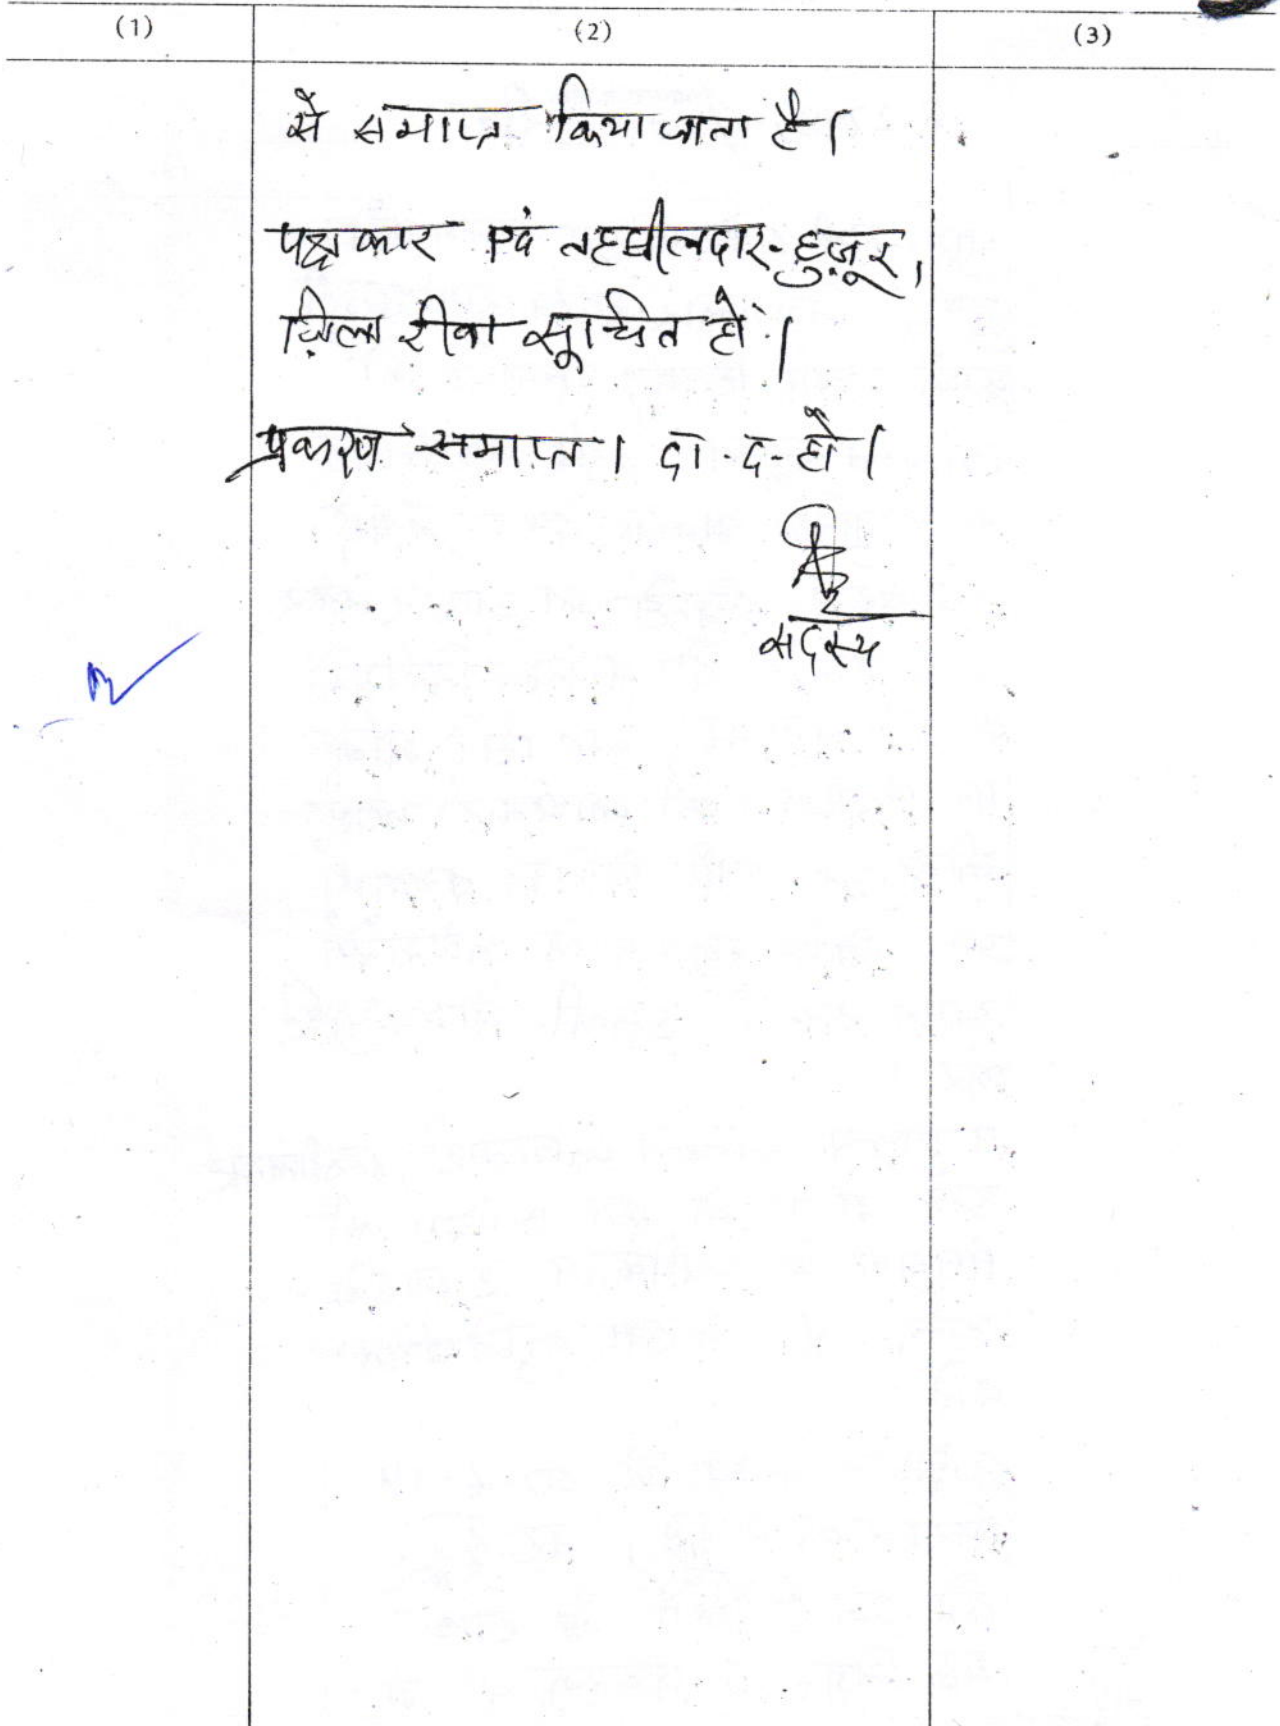 (1) (2) (3)
से समाप्त किया जाता है।
पक्षकार एवं तहसीलदार-हुजूर,
जिला रीवा सूचित हो।
प्रकरण समाप्त। दा.द. हो।
सदस्य